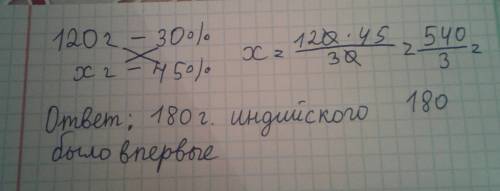 120 г – 30%
х г – 45%
х = 120 · 45 / 30 = 540 / 3 =
180
Ответ: 180 г. индийского
было впервые